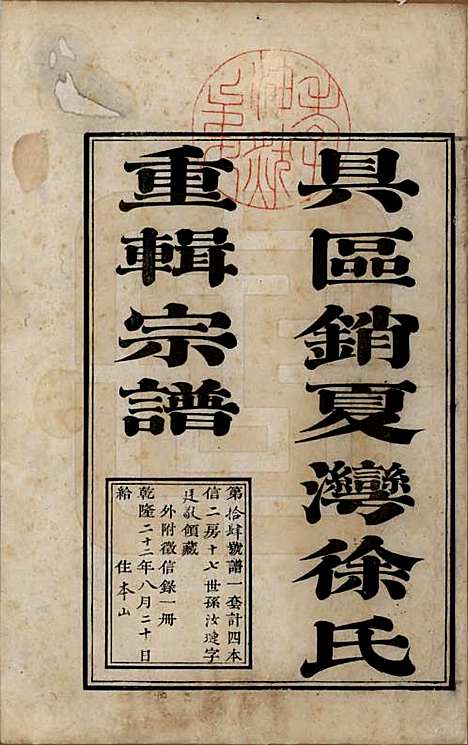 具區銷夏灣徐氏
重輯宗譜
第拾肆號譜一套計四本
信二房十七世孫汝璉字
廷敬領藏
外附徵信錄一冊
乾隆二十二年八月二十日
給　住本山